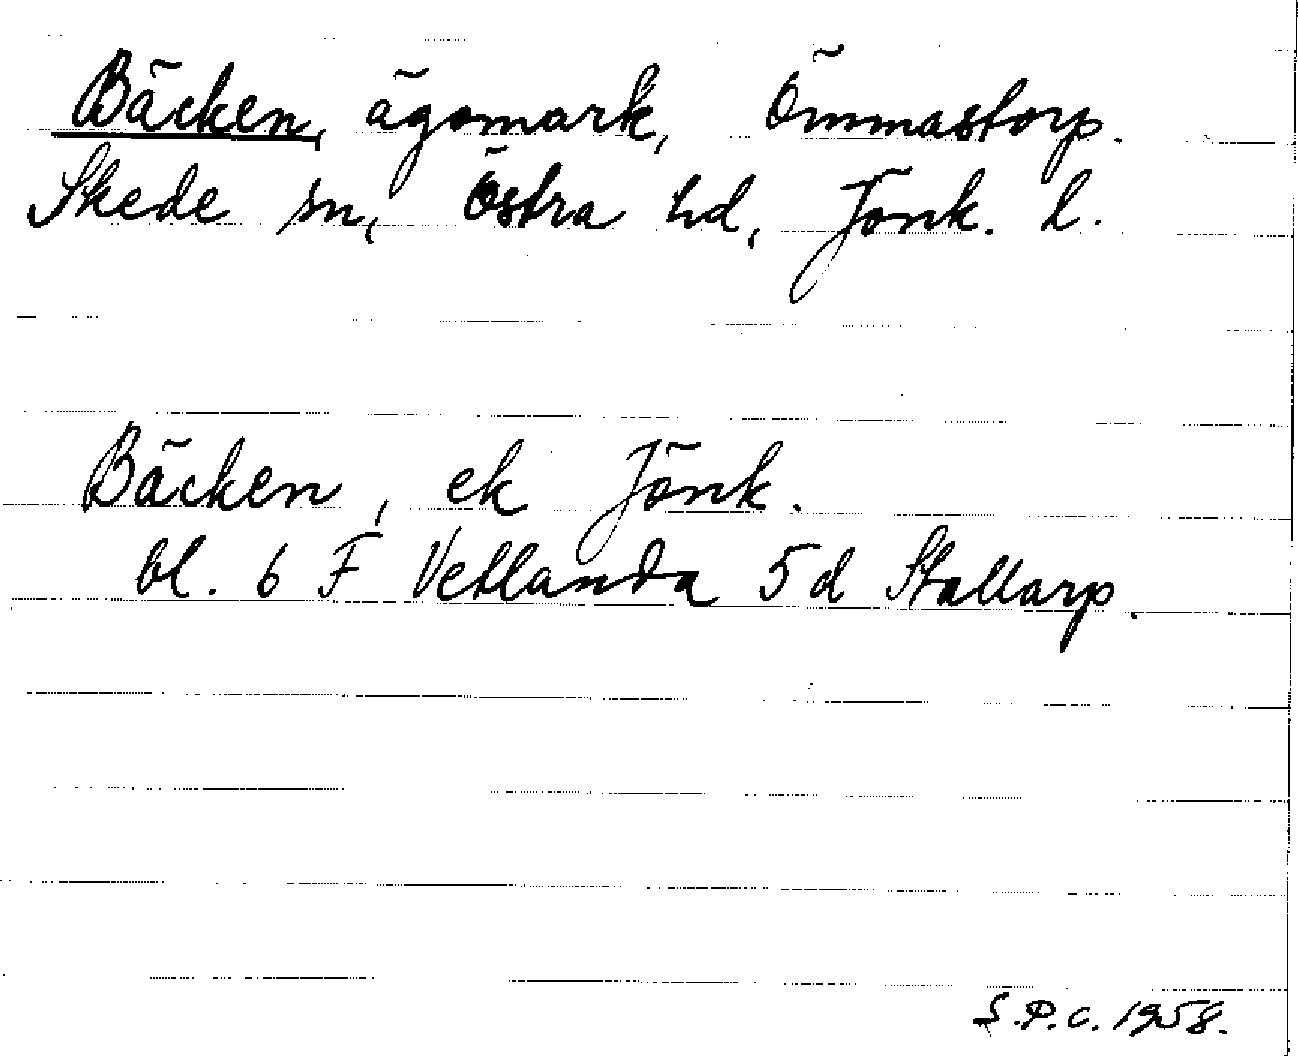 Bäcken, ägomark, Ömmastorp.
Skede sn, Östra hd, Jönk. l.
Bäcken, ek Jönk.
bl. 6 F Vetlanda 5d Stallarp.
S.P.C. 1958.